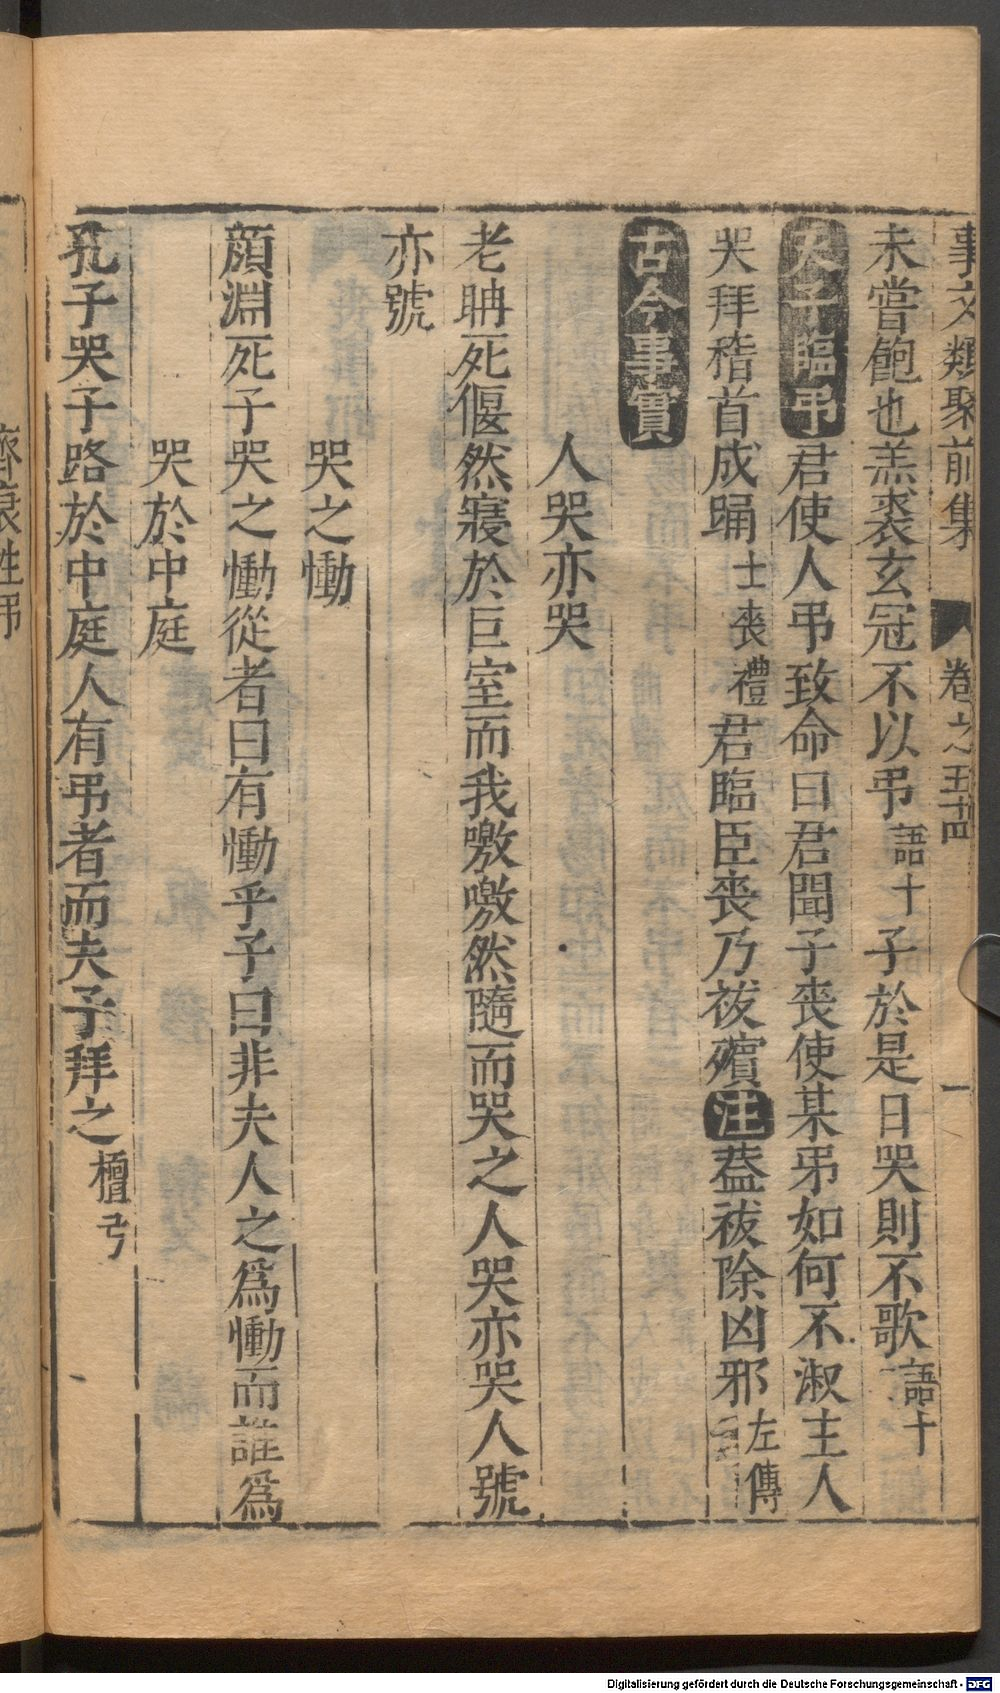 事文類聚前集 卷之五十四 一
未嘗飽也羔裘玄冠不以弔語十子於是日哭則不歌語十
天子臨弔君使人弔致命曰君聞子喪使某弔如何不淑主人
哭拜稽首成踊士喪禮君臨臣喪乃祓殯注葢祓除凶邪左傳
古今事實
人哭亦哭
老聃死偃然寢於巨室而我噭噭然隨而哭之人哭亦哭人號
亦號
哭之慟
顔淵死子哭之慟從者曰有慟乎子曰非夫人之爲慟而誰爲
哭於中庭
孔子哭子路於中庭人有弔者而夫子拜之檀弓
齊衰往弔
Digitalisierung gefördert durch die Deutsche Forschungsgemeinschaft - DFG